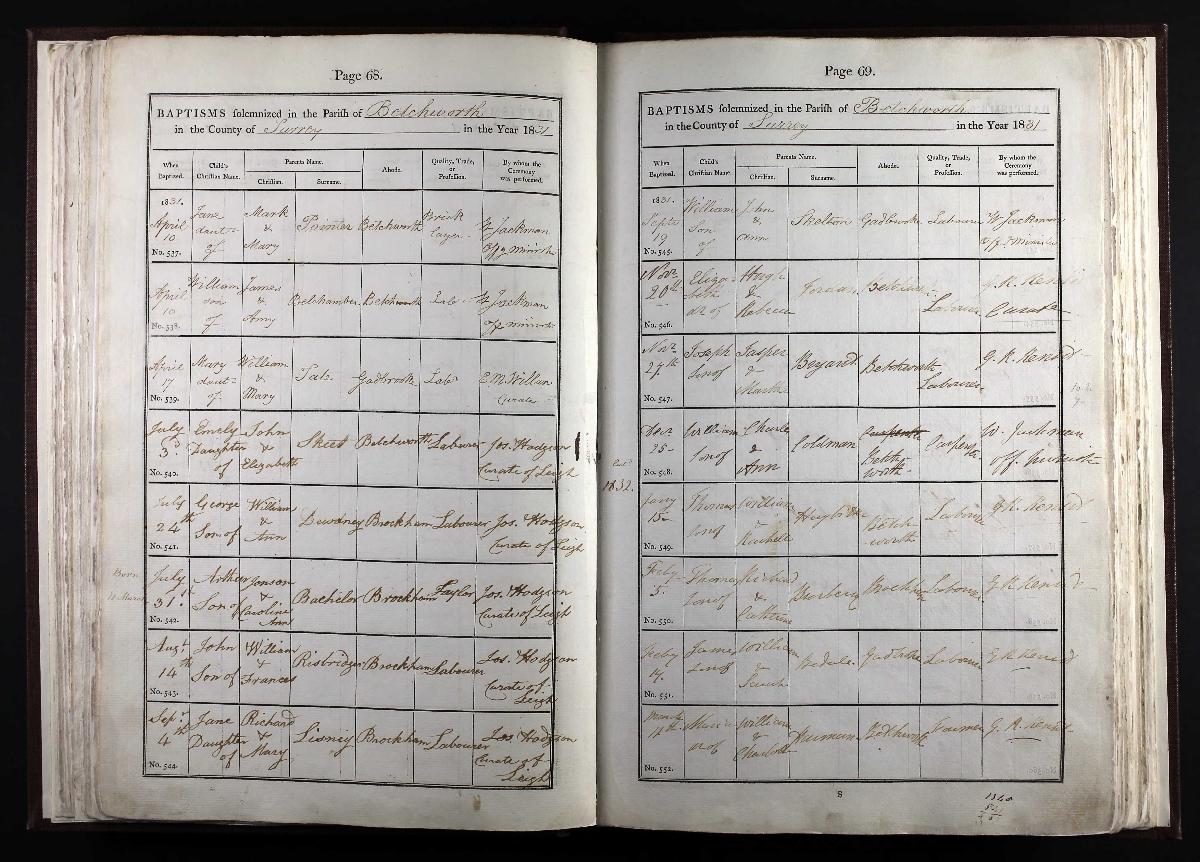 Page 68.
BAPTISMS solemnized in the Parish of Betchworth
in the County of Surrey in the Year 1831
When Baptized. Child's Christian Name. Parents Name. Christian. Surname. Abode. Quality, Trade, or Profession. By whom the Ceremony was performed.
1831.
April 10 Jane daut of Mark & Mary Pointer Betchworth Brick layer W Jackman offg minister
No. 537.
April 10 William son of James & Amy Belchamber Betchworth Lab W Jackman off minister
No. 538.
April 17 Mary daut of William & Mary Gadbrook Lab E. M. Willan Curate
No. 539.
July 3d Emely Daughter of John & Elizabeth Skeet Betchworth Labourer Jos. Hodgson Curate of Leigh
No. 540.
July 24th George Son of William & Ann Dewdney Brockham Labourer Jos. Hodgson Curate of Leigh
No. 541.
Born 11 March
July 31st Arthur Son of Jonson & Caroline Ann Bachelor Brockham Taylor Jos. Hodgson Curate of Leigh
No. 542.
Augt 14th John Son of William & Frances Risbridger Brockham Labourer Jos. Hodgson Curate of Leigh
No. 543.
Sepr 4th Jane Daughter of Richard & Mary Lisney Brockham Labourer Jos Hodgson Curate of Leigh
No. 544.
Page 69.
BAPTISMS solemnized in the Parish of Betchworth
in the County of Surrey in the Year 1831
When Baptized. Child's Christian Name. Parents Name. Christian. Surname. Abode. Quality, Trade, or Profession. By whom the Ceremony was performed.
1831.
Septr 19 William Son of John & Ann Skelton Gadbrooke Labourer W Jackman off minister
No. 545.
Novr 20th Eliza- beth dr of Hugh & Rebecca Labourer Curate
No. 546.
Novr 27th Joseph Son of Jasper & Martha Betchworth Labourer
No. 547.
25 William Son of Charles & Ann Coldman Carpenter Betch- worth Carpenter W. Jackman off. minister
No. 548.
1832.
Jany 15 Thomas Son of William & Betch- worth Labourer
No. 549.
Feby 5 Thomas Son of Richard & Catherine Labourer
No. 550.
Feby James Son of William & Sarah Labourer
No. 551.
March William & Charlotte Farmer
No. 552.
S